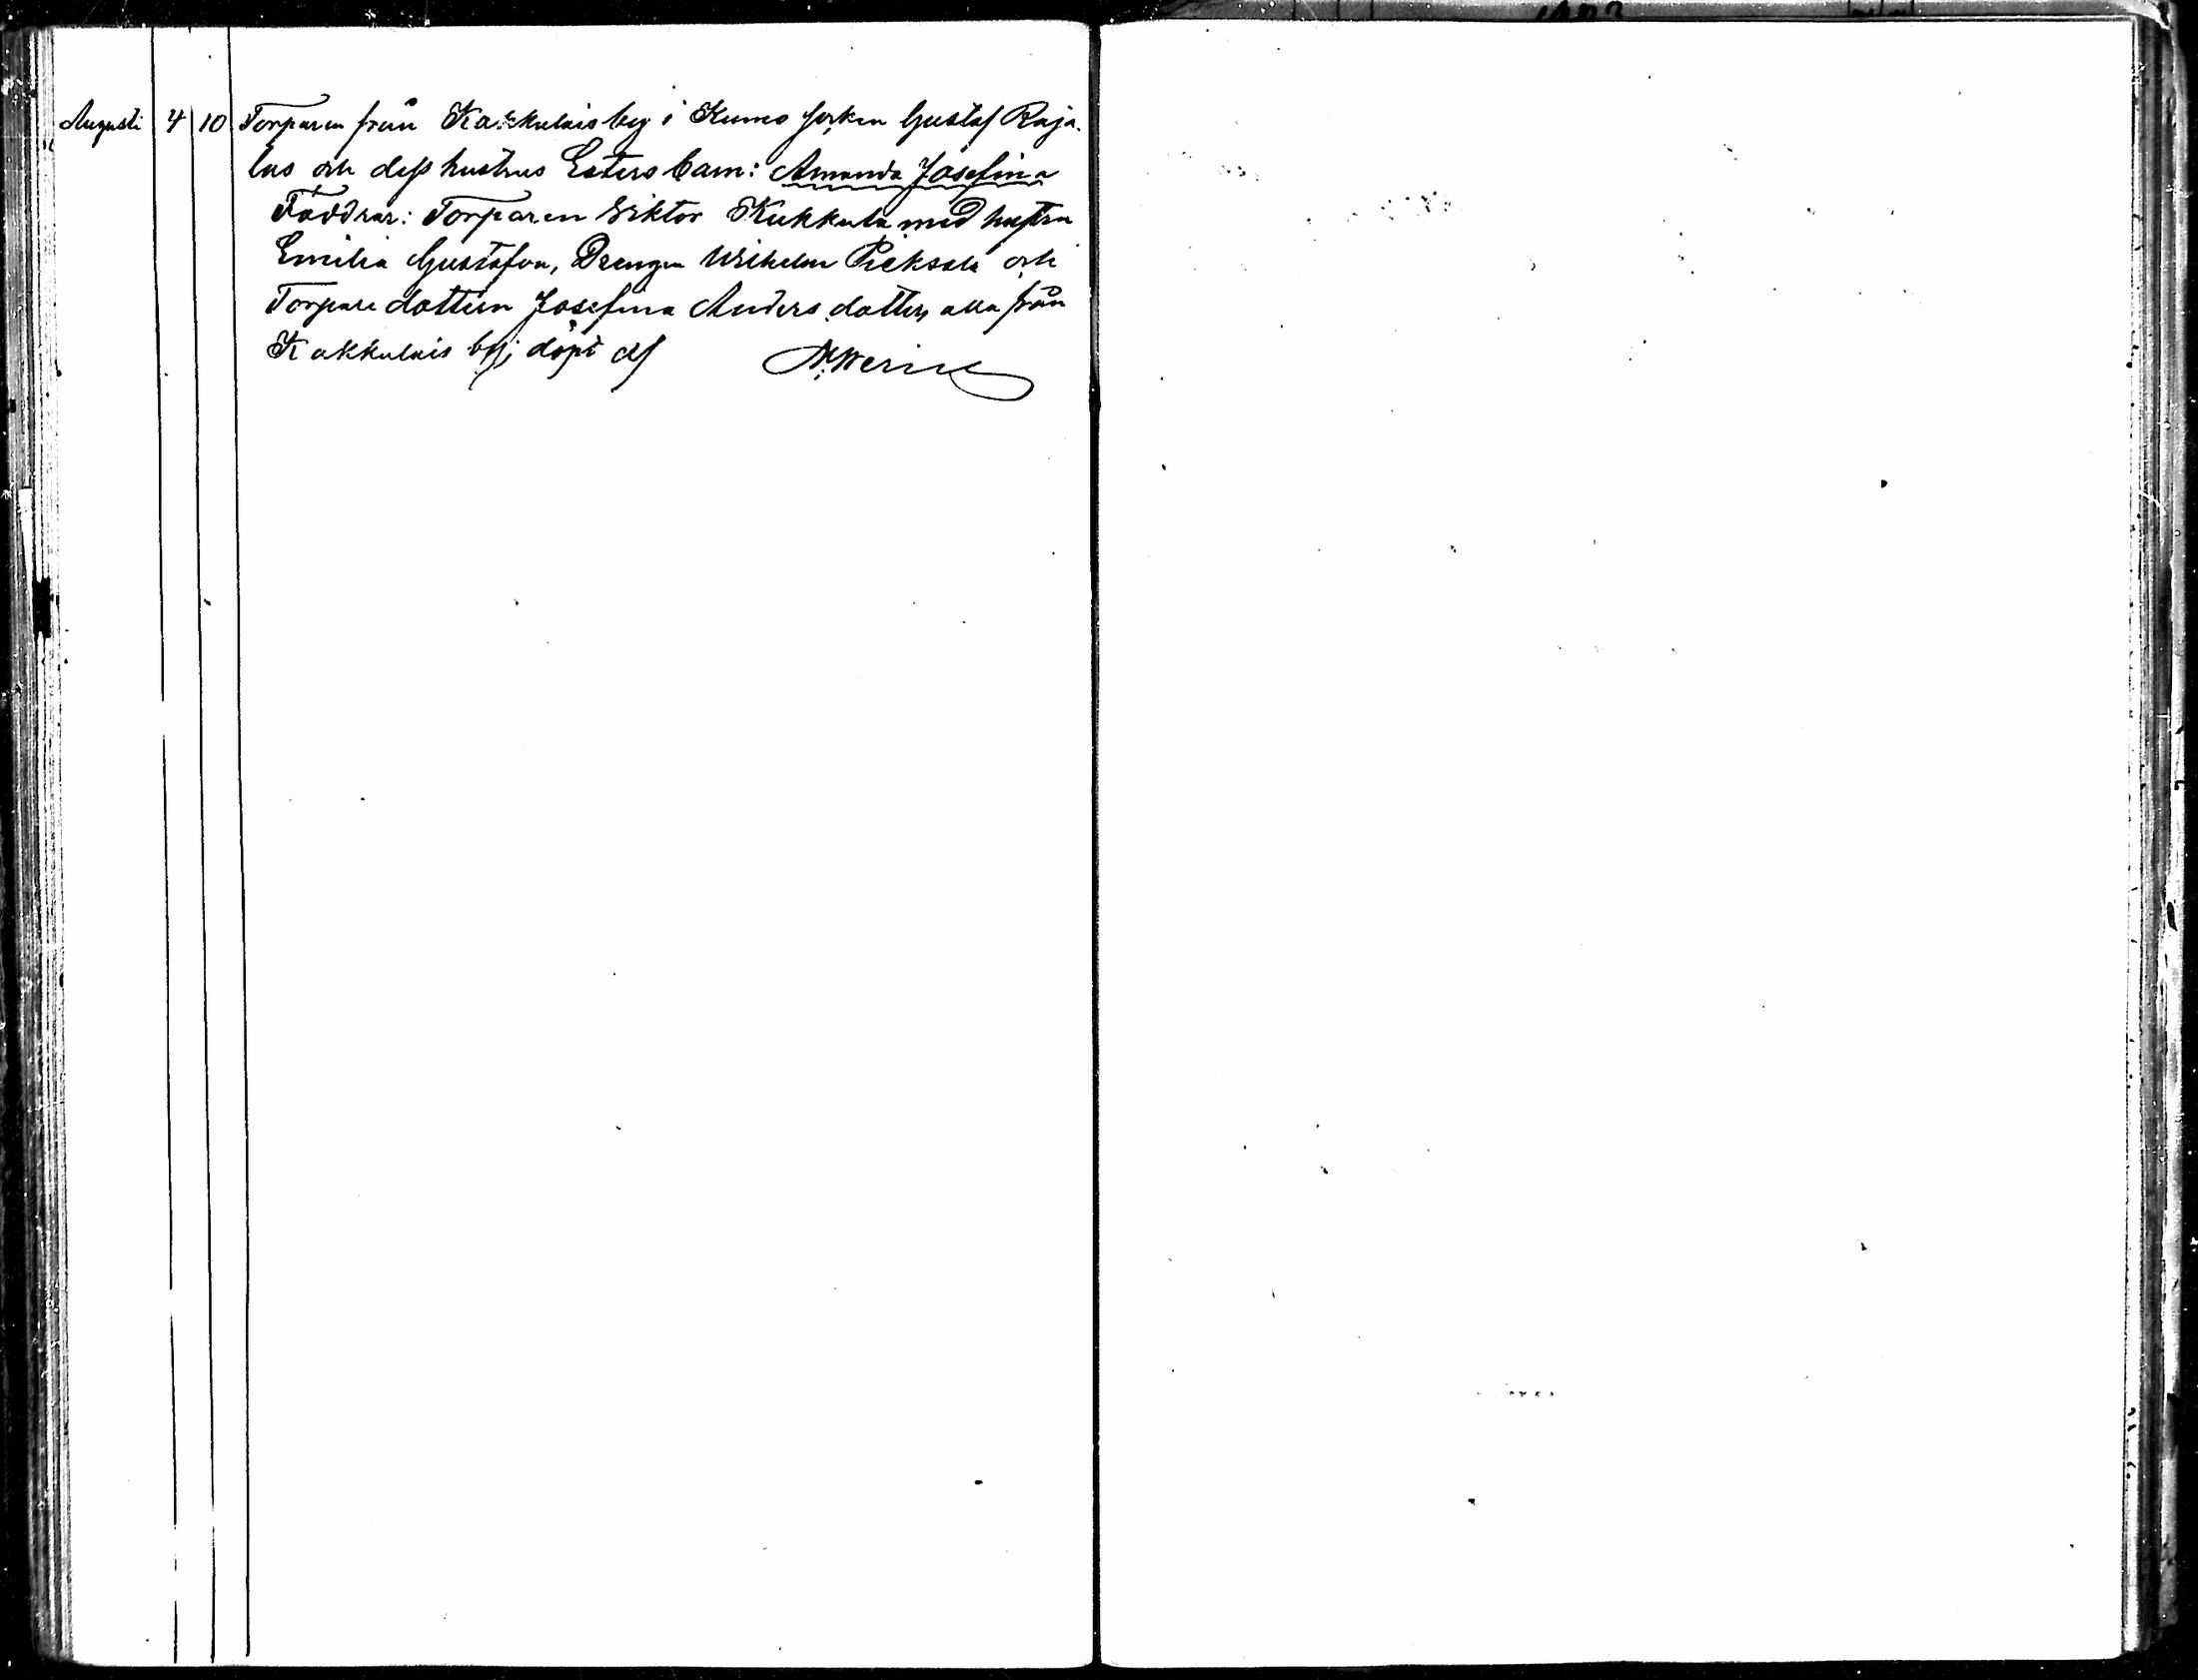 Augusti 4 10 Torparen från Kakkulais by i Kumo socken Gustaf Raja-
las och dess hustrus Esters barn: Amanda Josefina
Faddrar: Torparen Viktor Kukkula med hustru
Emilia Gustafva, Drengen Wilhelm Pieksala och
Torparedottern Josefina Anders dotter, alla från
Kakkulais by; döpt af